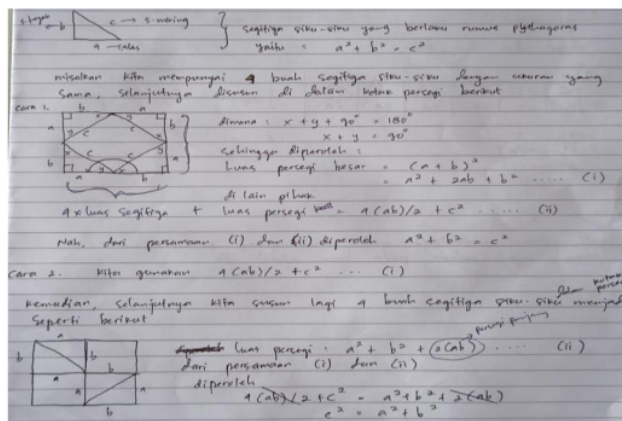 s. tegak b
c → s. miring
a → alas
segitiga siku-siku yang berlaku rumus phytagoras
yaitu : a² + b² = c²
misalkan kita mempunyai 4 buah segitiga siku-siku dengan ukuran yang
sama, selanjutnya disusun di dalam kotak persegi berikut
cara 1.
b a
a b
c c
c c
b a
a b
x y
dimana : x + y + 90° = 180°
x + y = 90°
sehingga diperoleh :
Luas persegi besar = (a + b)²
= a² + 2ab + b² ..... (i)
di lain pihak
4 x luas segitiga + luas persegi kecil = 4 (ab)/2 + c² ..... (ii)
Nah, dari persamaan (i) dan (ii) diperoleh a² + b² = c²
cara 2. kita gunakan 4 (ab)/2 + c² ... (i)
kemudian, selanjutnya kita susun lagi 4 buah segitiga siku-siku menjadi
dalam kotak persegi
seperti berikut
persegi panjang
a
b b
a a a
b
Luas persegi : a² + b² + 2(ab) ..... (ii)
dari persamaan (i) dan (ii)
diperoleh
4 (ab)/2 + c² = a² + b² + 2(ab)
c² = a² + b²